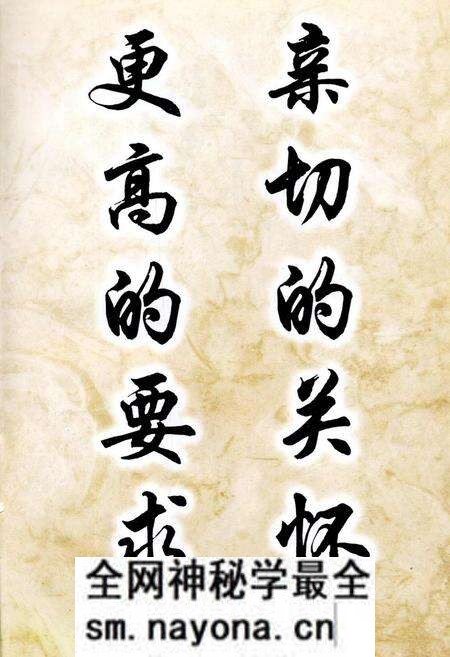 亲切的关怀
更高的要求
全网神秘学最全
sm.nayona.cn